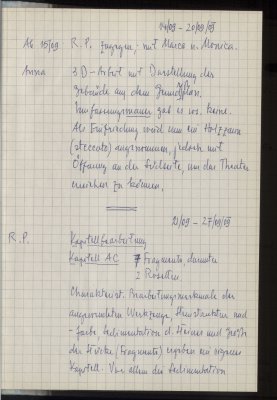 14/09 – 20/09/09
Ab 15/09 R. P. zugegen; mit Marco u. Monica.
Anna 3 D – Arbeit mit Darstellung der
Gebäude auf dem Grundplan.
Umfassungsmauer gab es vor. keine.
Als Einfriedung wird nun ein Holzzaun
(steccato) angenommen, jedoch mit
Öffnung an der Südseite, um das Theater
erreichen zu können.
21/09 – 27/09/09
R. P. Kapitellbearbeitung
Kapitell AC 7 Fragmente, darunter
2 Rosetten.
Charakterist. Bearbeitungsmerkmale der
angewandten Werkzeuge, Steinstruktur und
-farbe, Sedimentation d. Steines und Größe
der Stücke (Fragmente) ergeben ein eigenes
Kapitell. Vor allem die Sedimentation